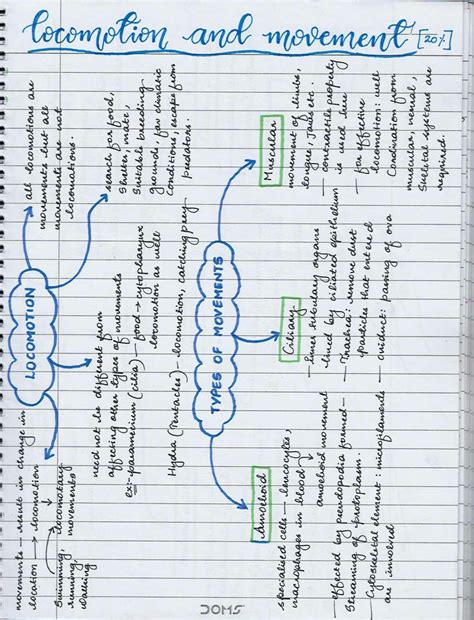 locomotion and movement [20%]
movements — result in change in
location → locomotion
locomotary
movements
swimming,
running,
walking
LOCOMOTION
all locomotions are
movements but all
movements are not
locomotions.
search for food,
shelter, mate,
suitable breeding
grounds, fav climatic
conditions, escape from
predators.
need not be different from
affecting other types of movements
ex:- paramecium (cilia) — food → cytopharynx
locomotion as well
Hydra (Tentacles) — locomotion, catching prey
TYPES OF MOVEMENTS
Amoeboid
specialised cells — leucocytes,
macrophages in blood
amoeboid movement
— effected by pseudopodia formed —
streaming of protoplasm.
— Cytoskeletal element: microfilaments
are involved
Ciliary
— Inner tubulary organs
lined by ciliated epithelium
— Trachea: remove dust
particles that entered
— oviduct: passing of ova
Muscular
movement of limbs,
tongues, jaws etc.
— contractile property
is used here
— for effective
locomotion: well
Coordination from
muscular, neural,
Skeletal systems are
required.
DOMS